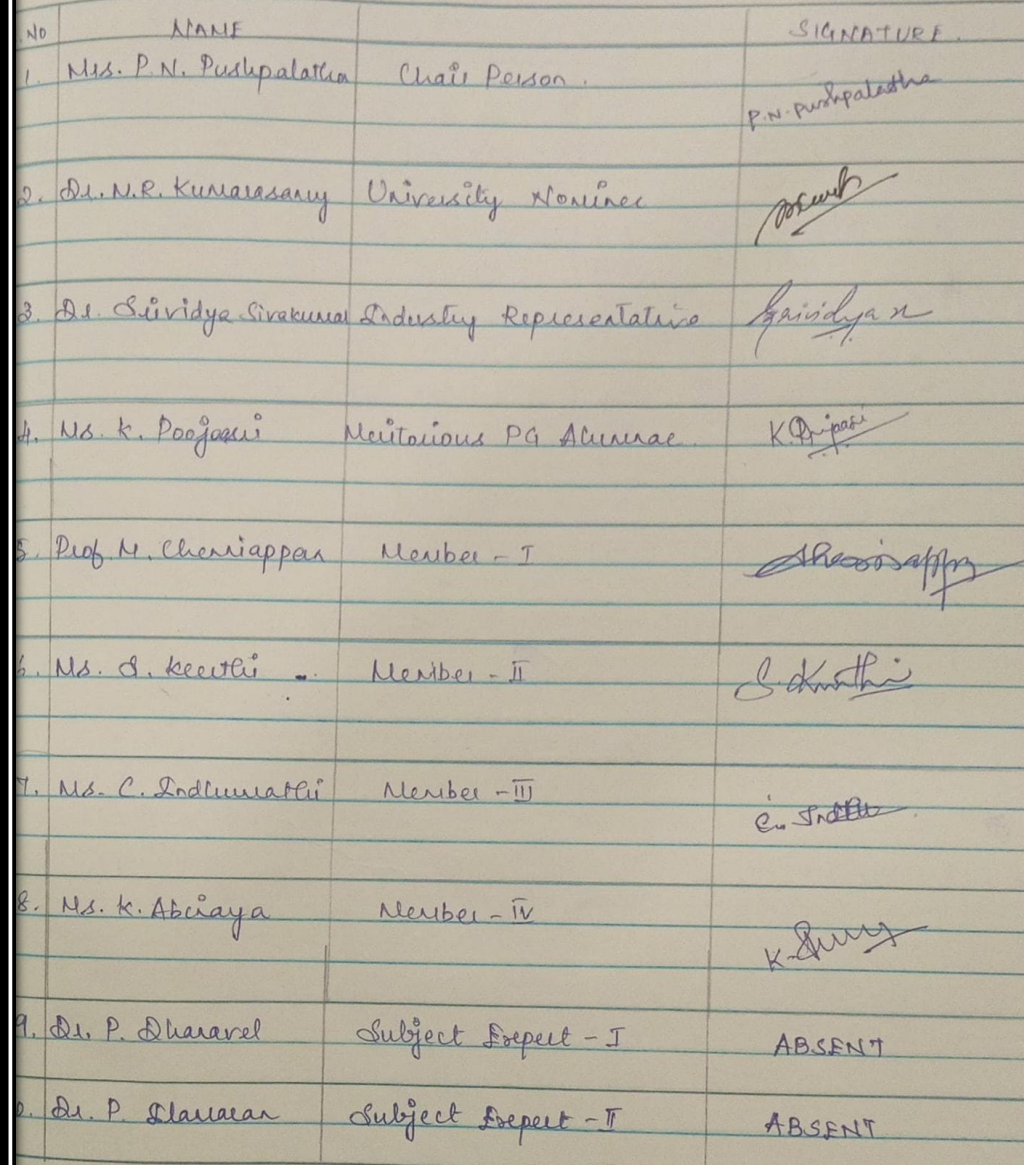 NO NAME SIGNATURE.
1. Mrs. P.N. Pushpalatha Chair Person. P.N. Pushpalatha
2. Dr. N.R. Kumarasamy University Nominee
3. Dr. Srividya Sivakumar Industry Representative Srividya
4. Ms. K. Meritorious PG Alumnae K.
5. Prof M. Chenniappan Member - I
6. Ms. S. Keerthi Member - II S. Keerthi
7. Ms. C. Indhumathi Member - III C. Indhu
8. Ms. K. Member - IV K.
9. Dr. P. Dhanavel Subject Expert - I ABSENT
Dr. P. Subject Expert - II ABSENT